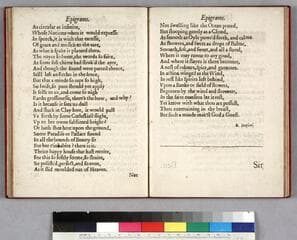 Epigrams.
As circular as infinite,
Whose Notions when it would expresse
In speech, it is with that excesse
Of grace and musick to the eare,
As what it spoke it planted there.
The voyce so sweet, the words so faire,
As some soft chime had stroak'd the ayre,
And though the sound were parted thence,
Still left an Eccho in the sence,
But that a minde so rapt so high,
So swift, so pure should yet apply
It selfe to us, and come so nigh
Earths grossenesse, there's the how, and why?
Is it because it sees us dull
And stuck in Clay here, it would pull
Us forth by some Coelestiall slight,
Up to her owne sublimed height?
Or hath she here upon the ground,
Some Paradise or Pallace found
In all the bounds of Beauty fit
For her t'inhabit? there is it.
Thrice happy house that hast receite,
For this so softly forme, so streight,
So polish'd, perfect, and so even,
As it slid moulded out of Heaven.
Not
Epigrams.
Not swelling like the Ocean proud,
But stooping gently as a Cloud,
As smooth as Oyle pour'd forth, and calme
As showers, and sweet as drops of Balme,
Smooth, soft, and sweet, and all a floud,
Where it may runne to any good,
And where it stayes it there becomes
A nest of odorous, spice, and gummes.
In action winged as the Wind,
In rest like spirits left behind
Upon a Banke or field of flowers,
Begotten by the wind and showers.
In thee faire mansion let it rest,
Yet know with what thou art possest,
Thou entertaining in thy breast,
But such a minde mak'st God a Guest.
Sir